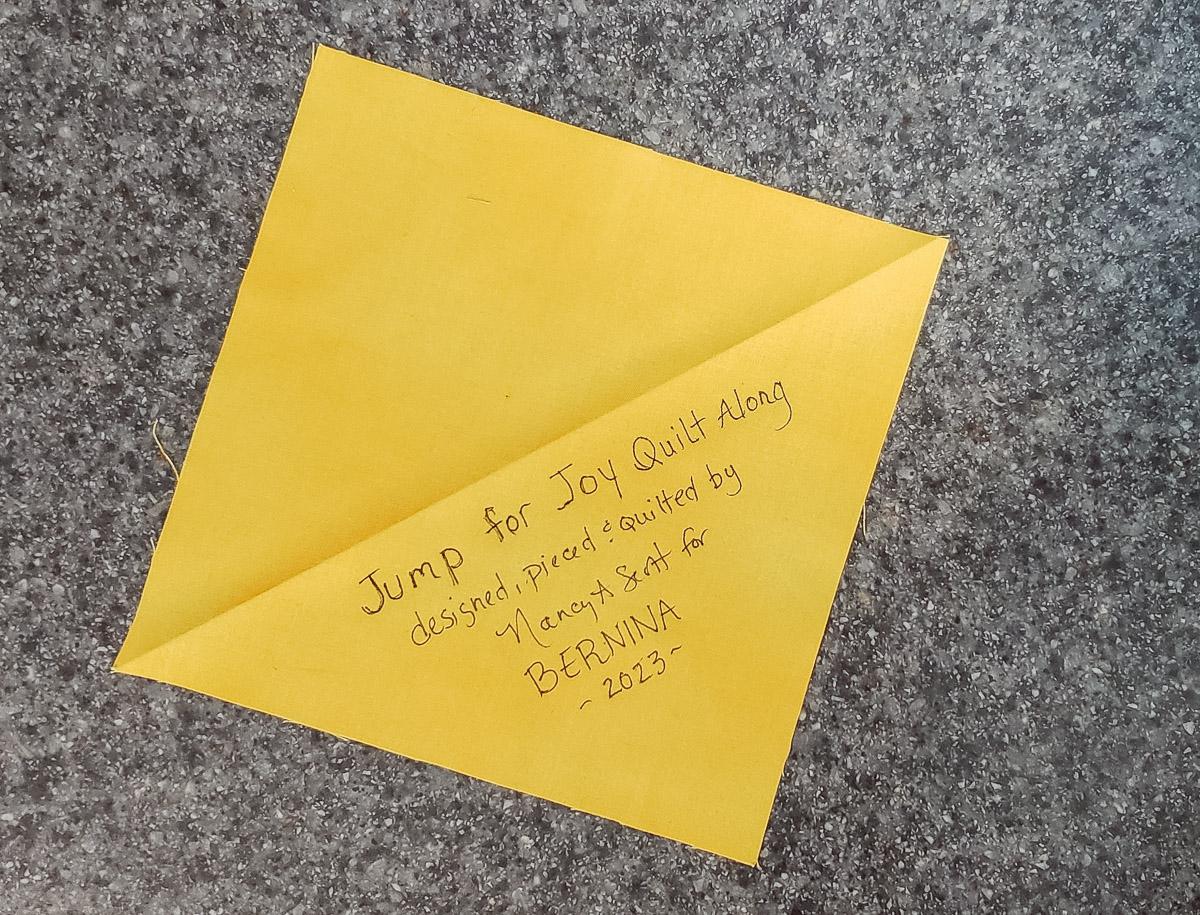 Jump for Joy Quilt Along
designed, pieced & quilted by
Nancy A Scott for
BERNINA
~ 2023 ~